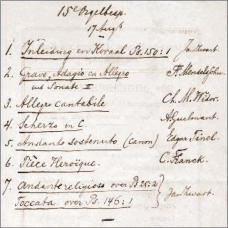 15e Orgelbesp.
17 Aug.
1. Inleiding en Koraal Ps. 150:1 Jan Zwart.
2. Grave, Adagio en Allegro F. Mendelssohn
uit Sonate II
3. Allegro cantabile Ch. M. Widor.
4. Scherzo in C. A. Guilmant.
5. Andante sostenuto (canon) Edgar Tinel.
6. Pièce Heroïque. C. Franck.
7. Andante religioso over Ps 25:2
Toccata over Ps. 146:1 Jan Zwart.